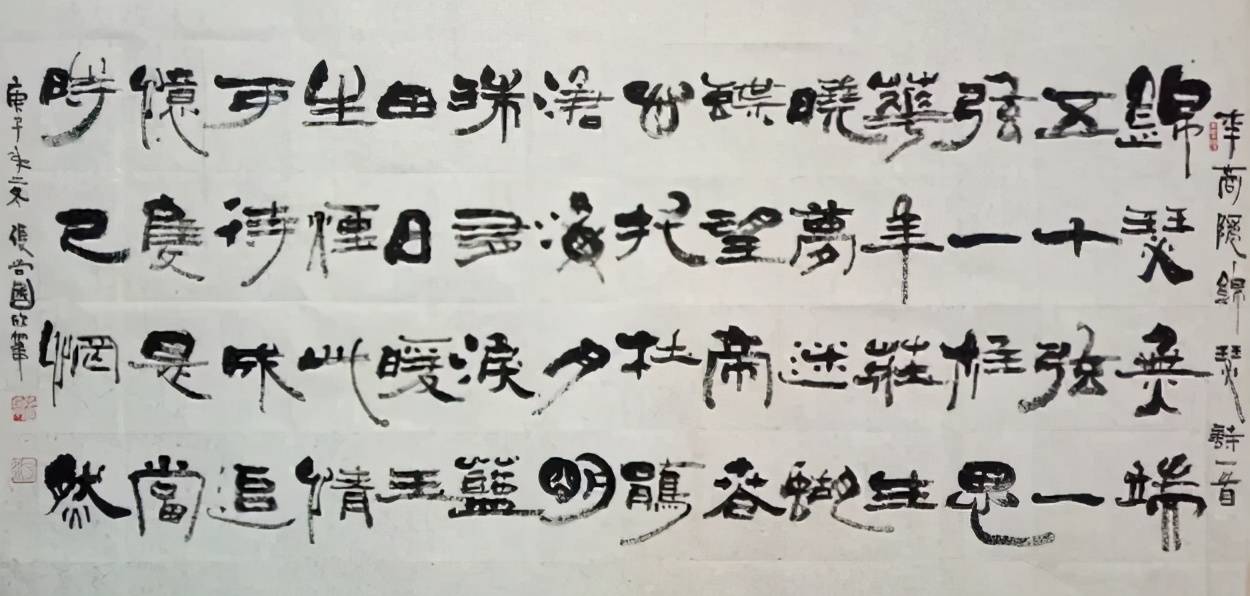 李商隱錦瑟詩一首
錦瑟無端
五十弦一
弦一柱思
華年莊生
曉夢迷蝴
蝶望帝春
心托杜鵑
滄海月明
珠有淚藍
田日暖玉
生煙此情
可待成追
憶隻是當
時已惘然
庚子冬張尚國筆